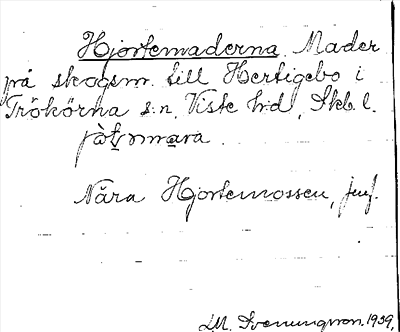 Hjortemaderna. Mader
på skogsm. till Hertigebo i
Trökörna s:n, Viste hd, Skb. l.
Nära Hjortemossen, jmf.
LM. Svenungson. 1939.